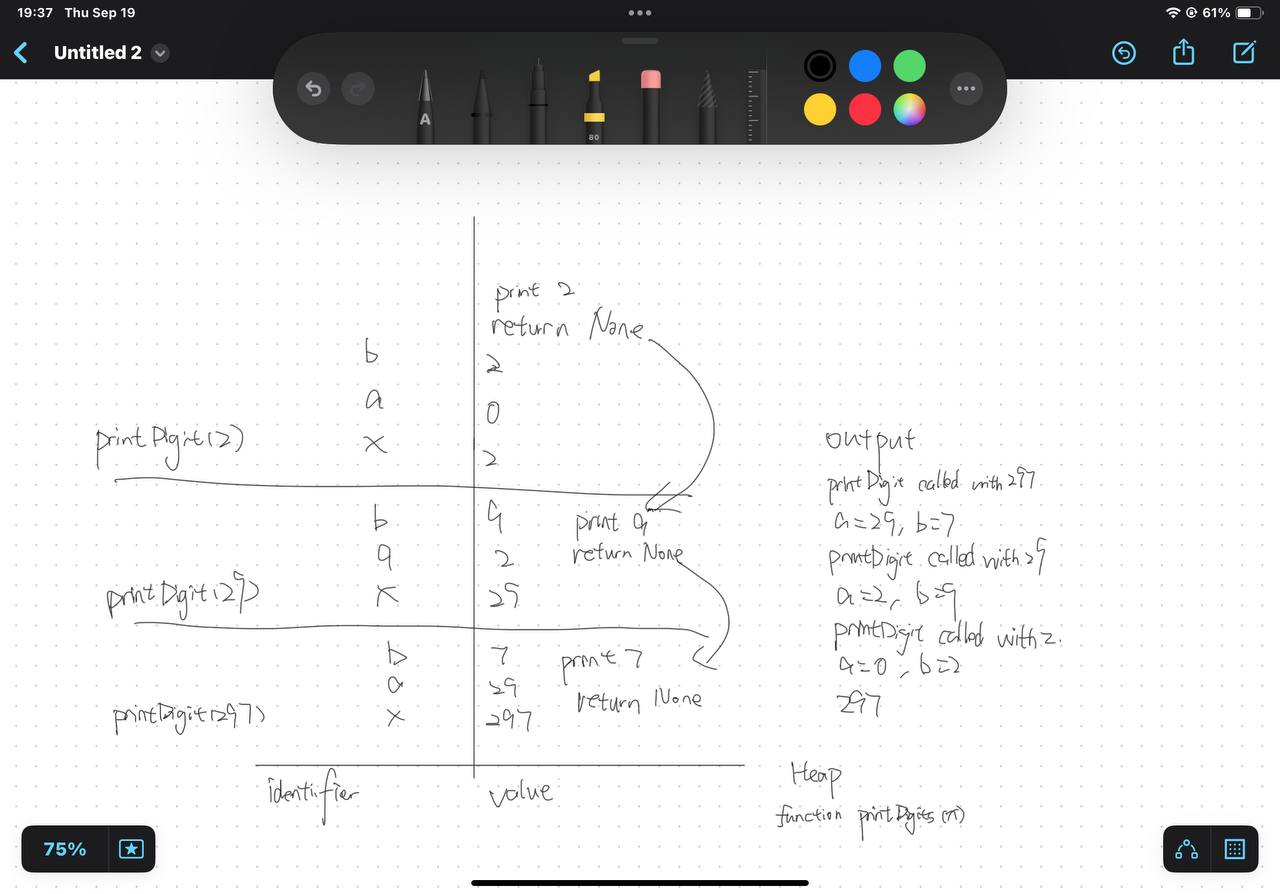 19:37 Thu Sep 19
61%
Untitled 2
A
80
print 2
return None
b 2
a 0
printDigit(2) x 2
b 9 print 9
a 2 return None
printDigit(29) x 29
b 7 print 7
a 29 return None
printDigit(297) x 297
identifier value
output
printDigit called with 297
a=29, b=7
printDigit called with 29
a=2, b=9
printDigit called with 2.
a=0, b=2
297
Heap
function printDigits(x)
75%